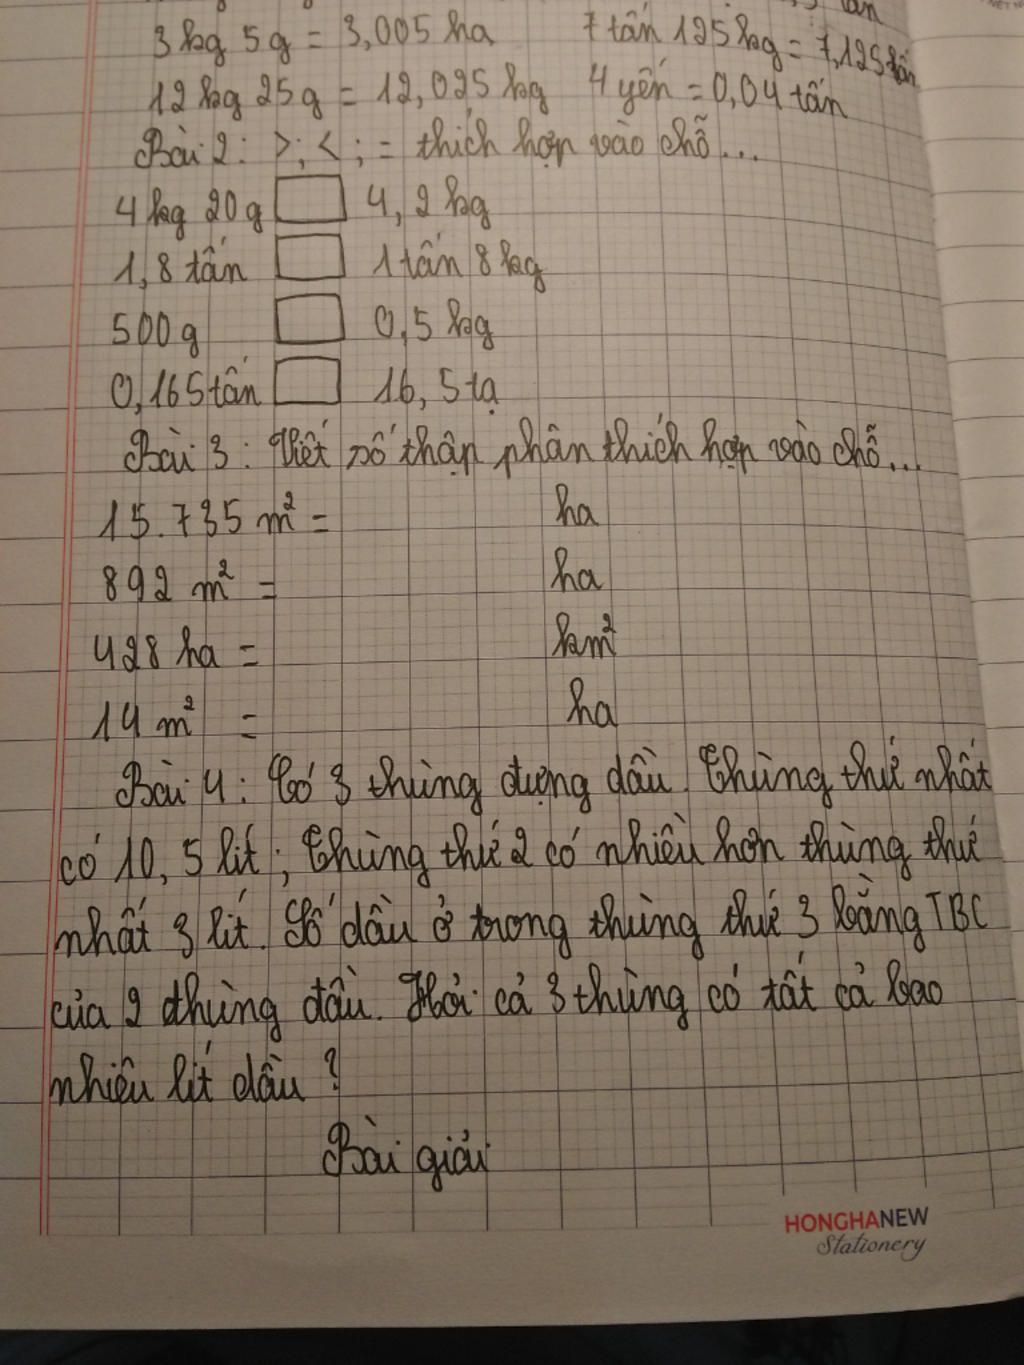 tấn
3kg 5g = 3,005 ha 7 tấn 125kg = 7,125 tấn
12 kg 25g = 12,025 kg 4 yến = 0,04 tấn
Bài 2: >; < ; = thích hợp vào chỗ...
4kg 20g 4,2kg
1,8 tấn 1 tấn 8kg
500g 0,5kg
0,165 tấn 16,5 tạ
Bài 3: Viết số thập phân thích hợp vào chỗ...
15.735 m² = ha
892 m² = ha
428 ha = km²
14 m² = ha
Bài 4: Có 3 thùng đựng dầu. Thùng thứ nhất
có 10,5 lít; Thùng thứ 2 có nhiều hơn thùng thứ
nhất 3 lít. Số dầu ở trong thùng thứ 3 bằng TBC
của 2 thùng đầu. Hỏi cả 3 thùng có tất cả bao
nhiêu lít dầu?
Bài giải
HONGHANEW
Stationery